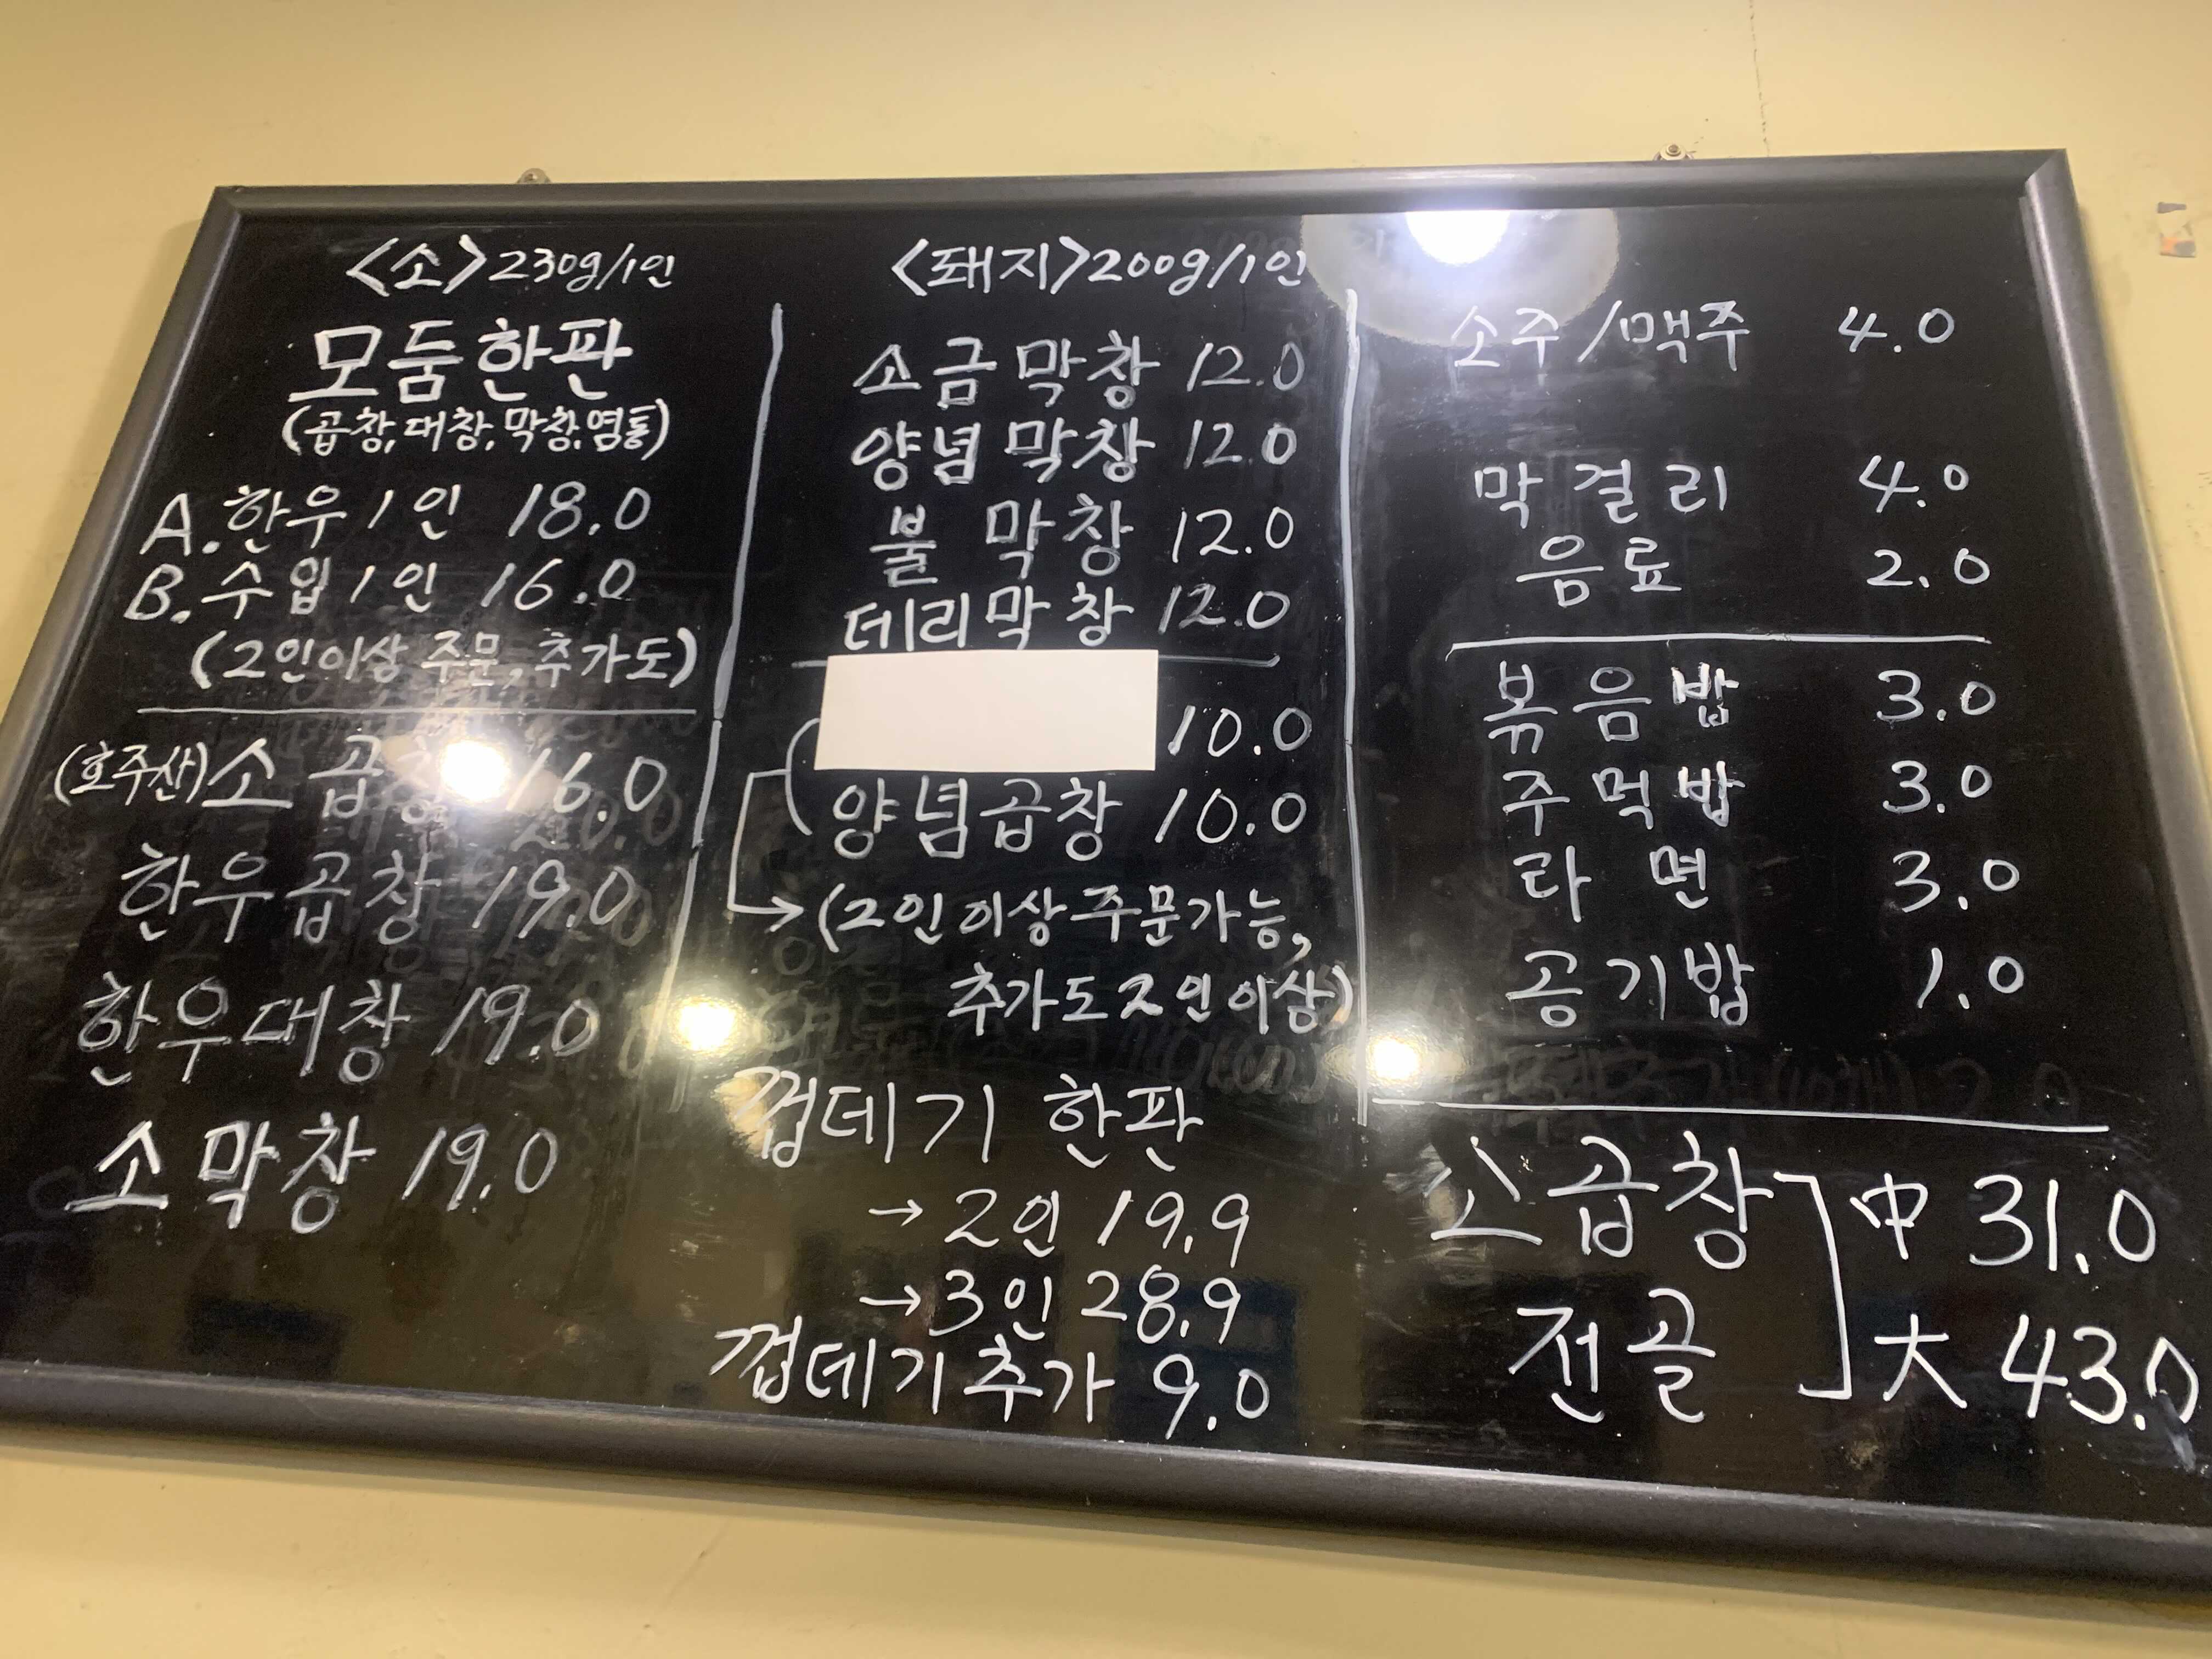 <소>230g/1인
모둠한판
(곱창,대창,막창,염통)
A.한우1인 18.0
B.수입1인 16.0
(2인이상 주문, 추가도)
(호주산)소 곱창 16.0
한우곱창 19.0
한우대창 19.0
소막창 19.0
<돼지>200g/1인
소금막창 12.0
양념막창 12.0
불 막창 12.0
데리막창 12.0
10.0
양념곱창 10.0
→(2인이상주문가능,
추가도2인이상)
껍데기 한판
→2인 19.9
→3인 28.9
껍데기추가 9.0
소주/맥주 4.0
막걸리 4.0
음료 2.0
볶음밥 3.0
주먹밥 3.0
라 면 3.0
공기밥 1.0
소곱창
전골
中 31.0
大 43.0